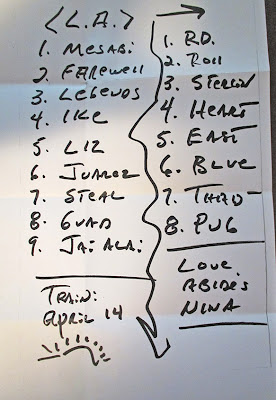 <L.A.>
1. MESABI
2. FAREWELL
3. LEGENDS
4. IKE
5. LIZ
6. JUAREZ
7. STEAL
8. GUAD
9. JAI ALAI
TRAIN:
April 14
1. RD.
2. ROLL
3. STERLIN
4. HEART
5. EAST
6. BLUE
7. THAD
8. PUG
LOVE
ABIDES
NINA